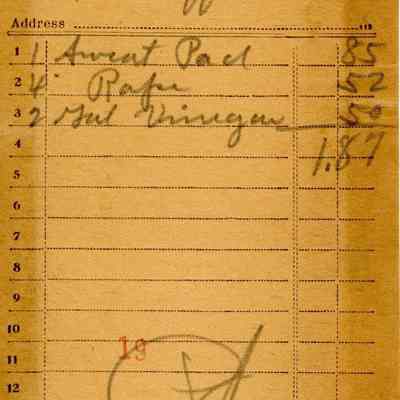 Address
1 1 Sweat Pad 85
2 4 Rope 52
3 2 Gal Vinegar 50
4 1.87
5
6
7
8
9
10
19
11
12